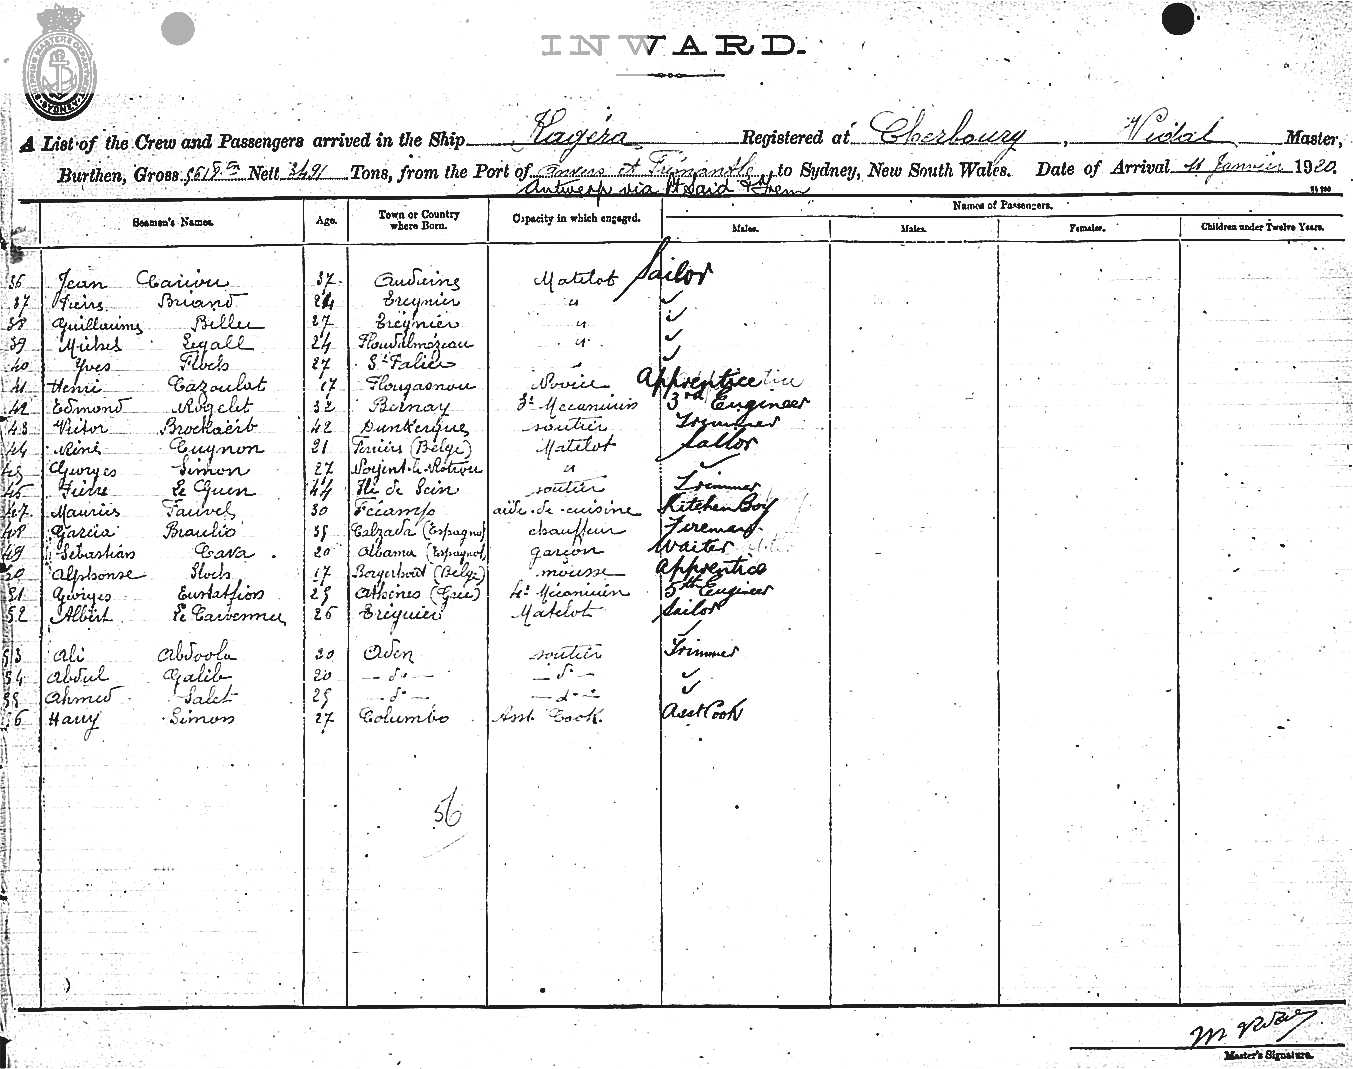 INWARD.
A List of the Crew and Passengers arrived in the Ship Kagéra Registered at Cherbourg, Vidal Master,
Burthen, Gross Nett 3491 Tons, from the Port of anvers et Frémantle to Sydney, New South Wales. Date of Arrival 11 Janvier 1920.
Antwerp via Pt Said & Frem
Names of Passengers.
Seamen's Names. Age. Town or Country where Born. Capacity in which engaged. Males. Males. Females. Children under Twelve Years.
36 Jean Cariou 37 Audierne Matelot Sailor
37 Pierre Briand 24 Tréguier " ✓
38 Guillaume Beller 27 Tréguier " ✓
39 Michel Legall 24 Ploudalmézeau " ✓
40 Yves Floch 27 " ✓
41 Henri Cazoulat 17 Plougasnou Novice Apprentice
42 Edmond 32 Bernay 3e Mécanicien 3rd Engineer
43 Victor Brockaërt 42 Dunkerque soutier Trimmer
44 René Guynon 21 (Belge) Matelot Sailor
45 Georges Simon 27 Nogent-le-Rotrou " ✓
46 Pierre Le Guen 44 Ile de Sein soutier Trimmer
47 Maurice Fauvel 30 Fécamp aide-de-cuisine Kitchen Boy
48 Garcia Braulio 39 Calzada (Espagnol) chauffeur Fireman
49 Sébastian Cava 20 (Espagnol) garçon Waiter
50 Alphonse Stocks 17 Borgerhout (Belge) mousse Apprentice
51 Georges Eustathion 29 Athènes (Grèce) 4e Mécanicien 5th Engineer
52 Albert Le Carvennec 26 Tréguier Matelot Sailor
✓
53 Ali Abdoola 20 Aden soutier Trimmer
54 Abdul Galib 20 — do — — do — ✓
55 Ahmed Salet 29 — do — — do — ✓
56 Harry Simon 27 Columbo Asst Cook. Asst Cook
56
Master's Signature.